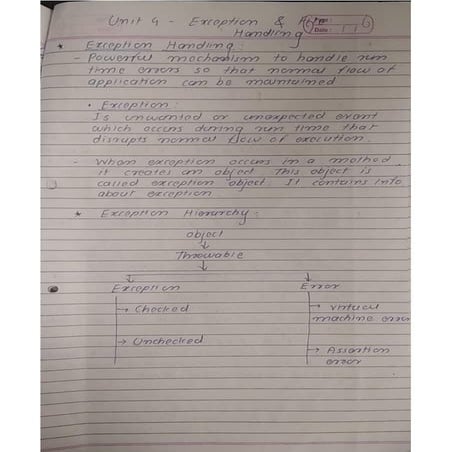 Unit 4 - Exception &
Handling
Date:
* Exception Handling:
- Powerful mechanism to handle run
time errors so that normal flow of
application can be maintained
• Exception:
Is unwanted or unexpected event
which occurs during run time that
disrupts normal flow of execution.
- When exception occurs in a method,
it creates an object. This object is
called exception object. It contains info
about exception.
* Exception Hierarchy:
object
↓
Throwable
↓
Exception Error
→ Checked → Virtual
machine error
→ Unchecked → Assertion
error